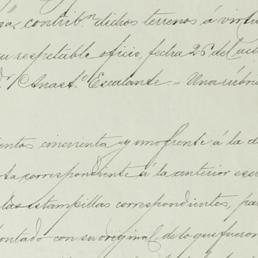 contribn. dichos terrenos á virtu
su respetable oficio, fecha 26 del ac
Anasto. Escalante. - Una rúbri
entos cincuenta y uno frente á la d
ta correspondiente á la anterior es
las estampillas correspondientes, pa
ontado con su original de lo que fueron